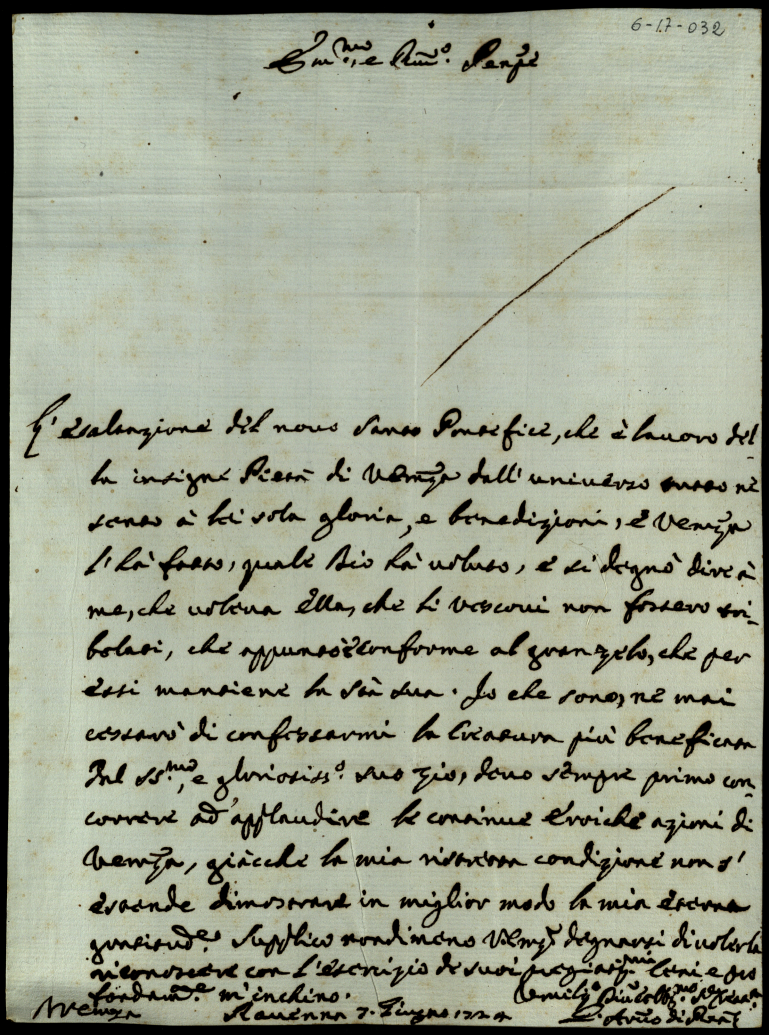 6-17-032
Em.mo, e Rmo. Prnpe
L'esaltazione del novo Santo Pontefice, che è lavoro del
la insigne Pietà di Vemza dall'universo tutto ne
sento à lei sola gloria, e benedizioni, e Vemza
l'hà fatto, quale Dio hà voluto, e si degnò dire à
me, che voleva ella, che li Vescovi non fossero tri-
bolati, che appunto è conforme al gran zelo, che per
essi mantiene la Stà sua. Io che sono, ne mai
cessarò di confessarmi la Creatura più beneficata
Dal SS.mo, e glorosiss.o suo zio, devo sempre primo con-
correre ad applaudire le continue eroiche azioni di
Vemza, giàcche la mia ristretta condizione non s'
estende dimostrare in miglior modo la mia eterna
gratitud.e Supplico nondimeno Vemza degnarsi di volerla
riconoscere con l'esercizio de suoi pregiatis.mi Ceni e pro
fondam.e m'inchino.
A Vemza Ravenna 7. Giugno 1724
L'Arciv.o di Rav.